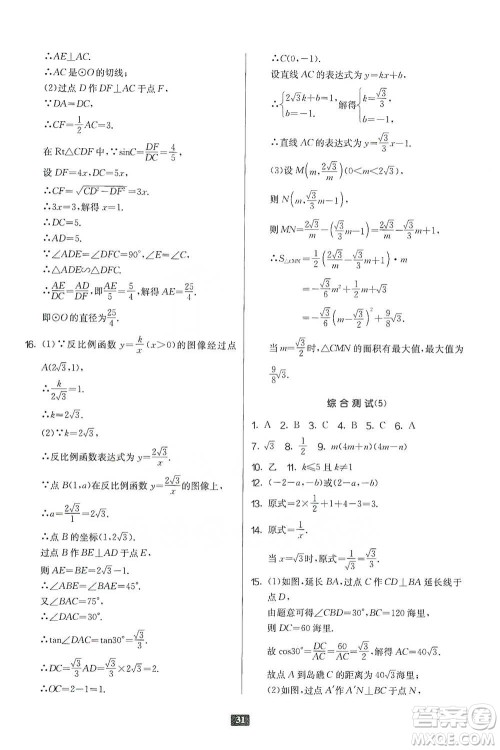 ∴AE⊥AC.
∴AC是⊙O的切线;
(2)过点D作DF⊥AC于点F,
∵DA=DC,
∴CF=1/2AC=3.
在Rt△CDF中,∵sinC=DF/DC=4/5,
设DF=4x,DC=5x,
∴CF=√(CD²-DF²)=3x,
∴3x=3,解得x=1.
∴DC=5.
∴AD=5.
∵∠ADE=∠DFC=90°,∠E=∠C,
∴△ADE∽△DFC.
∴AE/DC=AD/DF,即AE/5=5/4,解得AE=25/4.
即⊙O的直径为25/4.
16. (1)∵反比例函数y=k/x(x>0)的图像经过点
A(2√3,1),
∴k/(2√3)=1.
∴k=2√3.
(2)∵k=2√3,
∴反比例函数表达式为y=2√3/x.
∵点B(a,2√3)在反比例函数y=2√3/x的图像上,
∴a=2√3/(2√3)=1.
∴点B的坐标(1,2√3).
过点B作BE⊥AD于点E,
则AE=BE=2√3-1.
∴∠ABE=∠BAE=45°.
又∵∠BAC=75°,
∴∠DAC=30°.
∴tan∠DAC=tan30°=√3/3.
∴DC=√3/3AD=√3/3×2√3=2.
∴OC=2-1=1.
∴C(0,-1).
设直线AC的表达式为y=kx+b,
∴{2√3k+b=1, b=-1. 解得{k=√3/3, b=-1.
∴直线AC的表达式为y=√3/3x-1.
(3)设M(m,2√3/m)(0<m<2√3),
则N(m,√3/3m-1),
则MN=2√3/m-(√3/3m-1)=2√3/m-√3/3m+1.
∴S△CMN=1/2(2√3/m-√3/3m+1)·m
=-√3/6m²+1/2m+√3
=-√3/6(m-√3/2)²+9/8√3.
当m=√3/2时,△CMN的面积有最大值,最大值为
9/8√3.
综合测试(5)
1. A 2. B 3. C 4. B 5. C 6. A
7. √3 8. 1/2 9. m(4m+n)(4m-n)
10. 乙 11. k≤5且k≠1
12. (-2-a,-b)或(2-a,-b)
13. 原式=2×1/2+1+4-3=3.
14. 原式=1/x.
15. (1)如图,延长BA,过点C作CD⊥BA延长线于
点D,
由题意可得∠DCA=30°,CD=60海里.
故cos30°=DC/AC=60/AC=√3/2,解得AC=40√3.
故点A到岛礁C的距离为40√3海里.
(2)如图,过点A′作A′N⊥BC于点N,A′E⊥
31